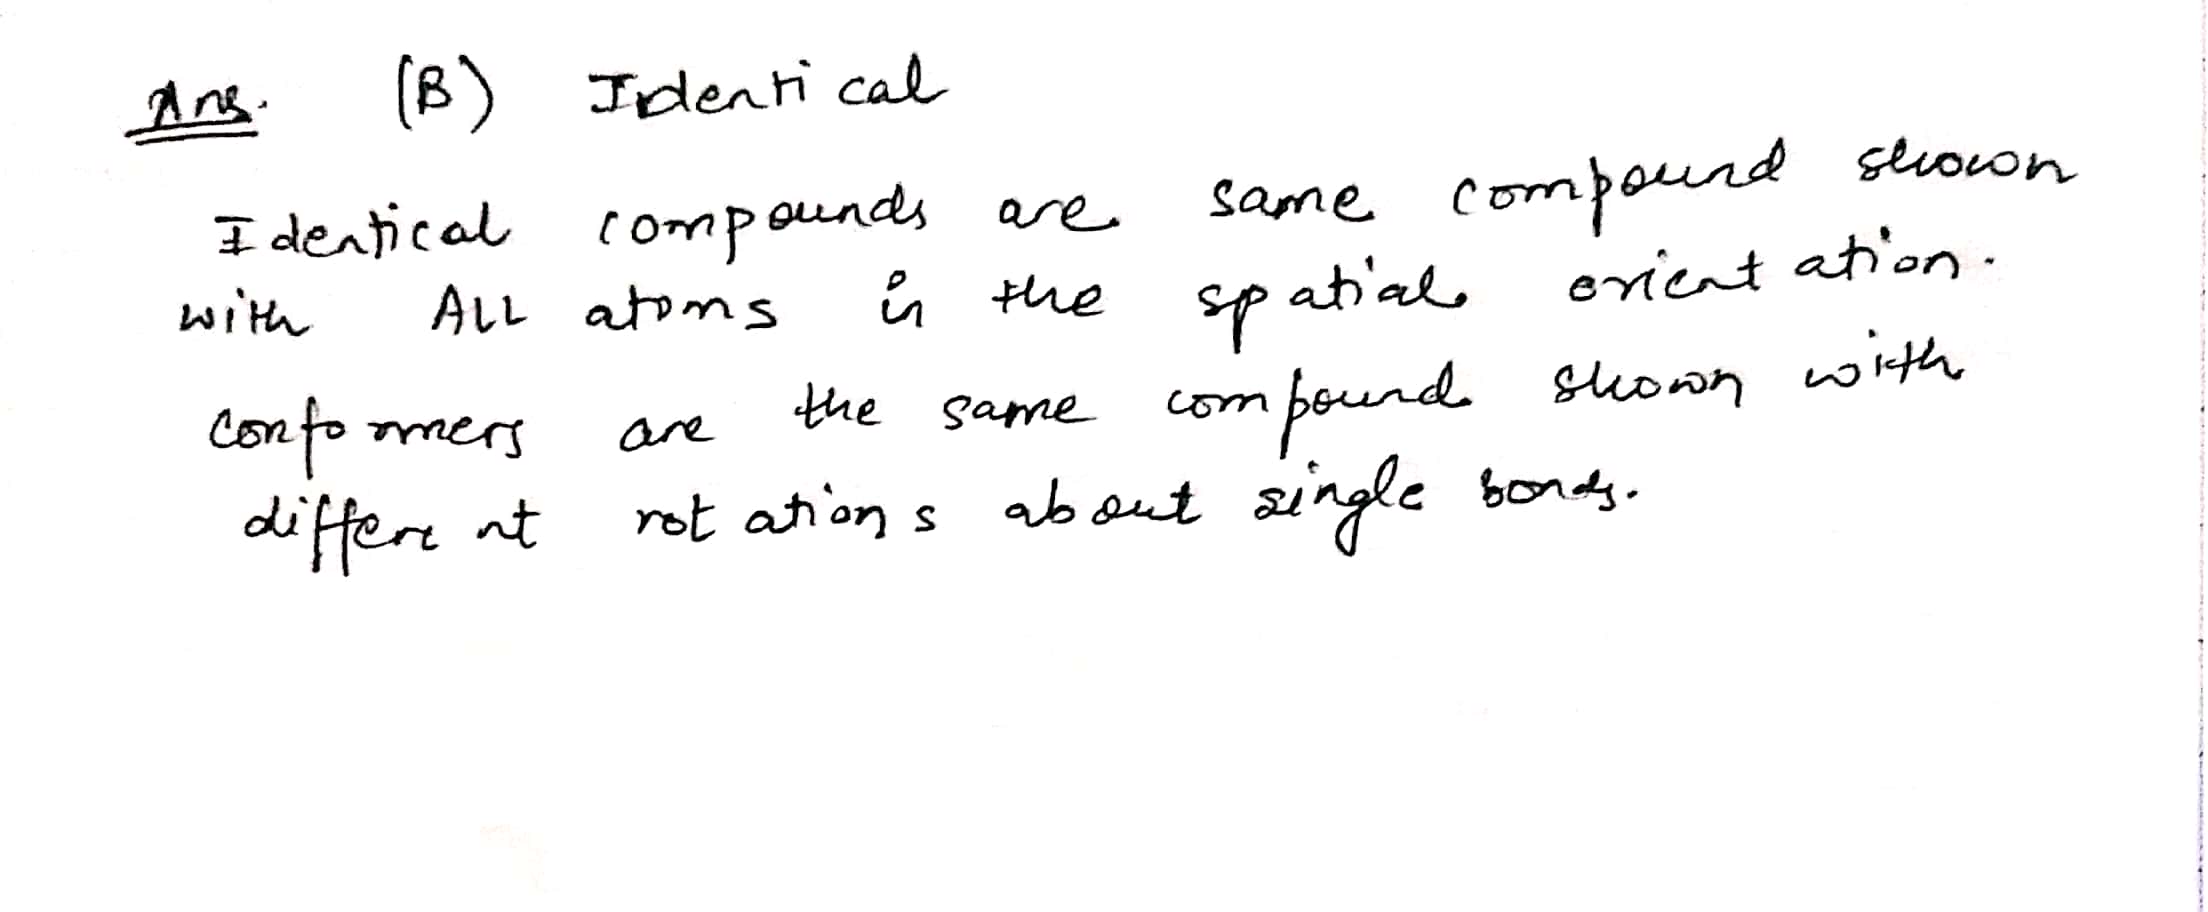 Ans. (B) Identical
Identical compounds are same compound shown
with ALL atoms in the spatial orientation.
conformers are the same compound shown with
different rotations about single bonds.